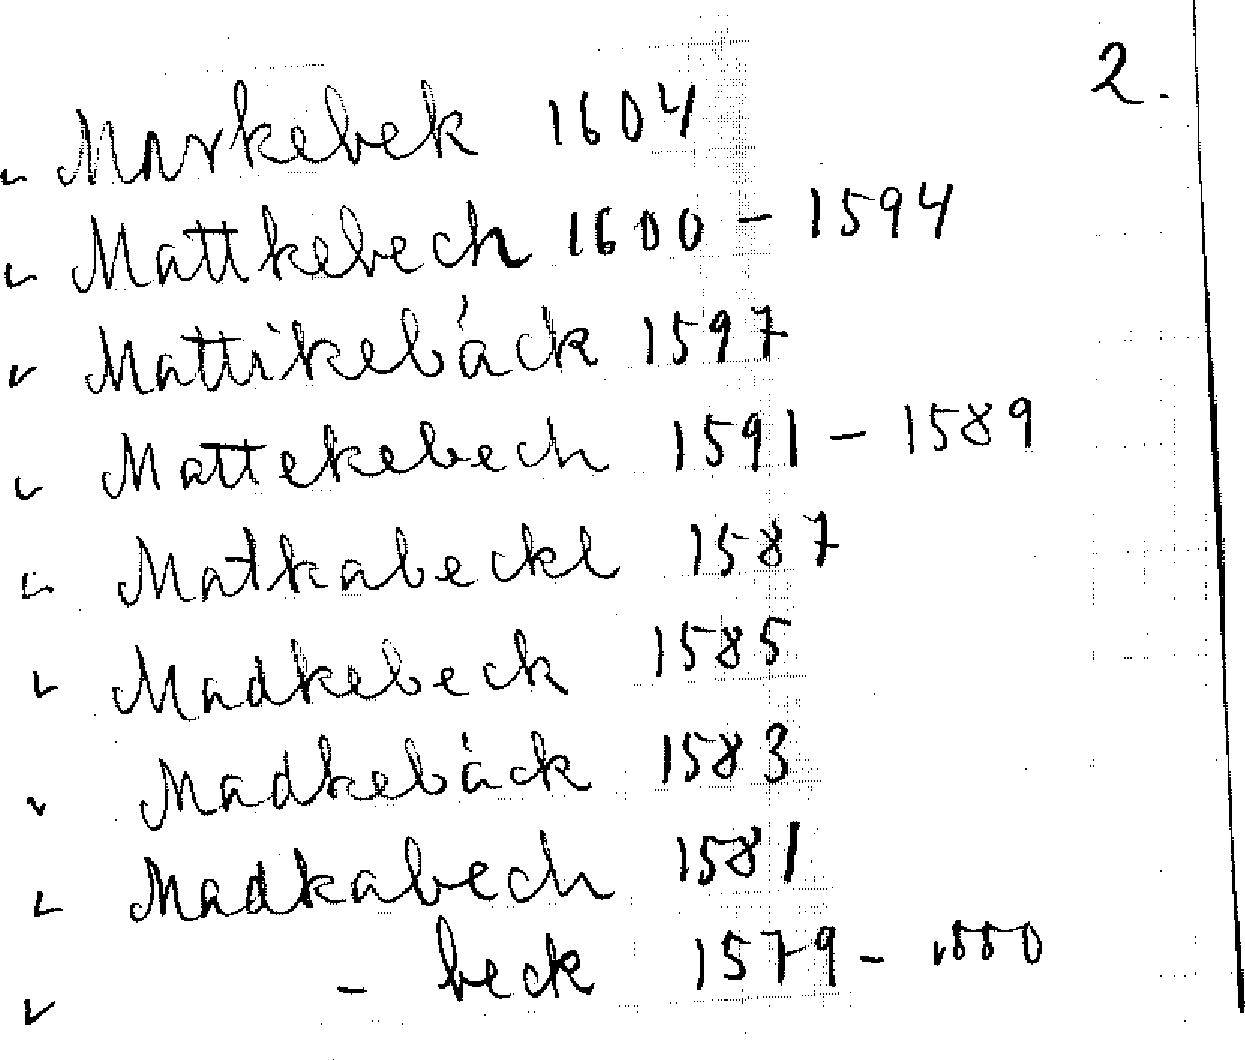 2.
Markebek 1604
Mattkebech 1600 - 1594
Mattikebäck 1597
Mattekebech 1591 - 1589
Matkabeckl 1587
Madkebeck 1585
Madkebäck 1583
Madkabech 1581
- beck 1579 - 1550